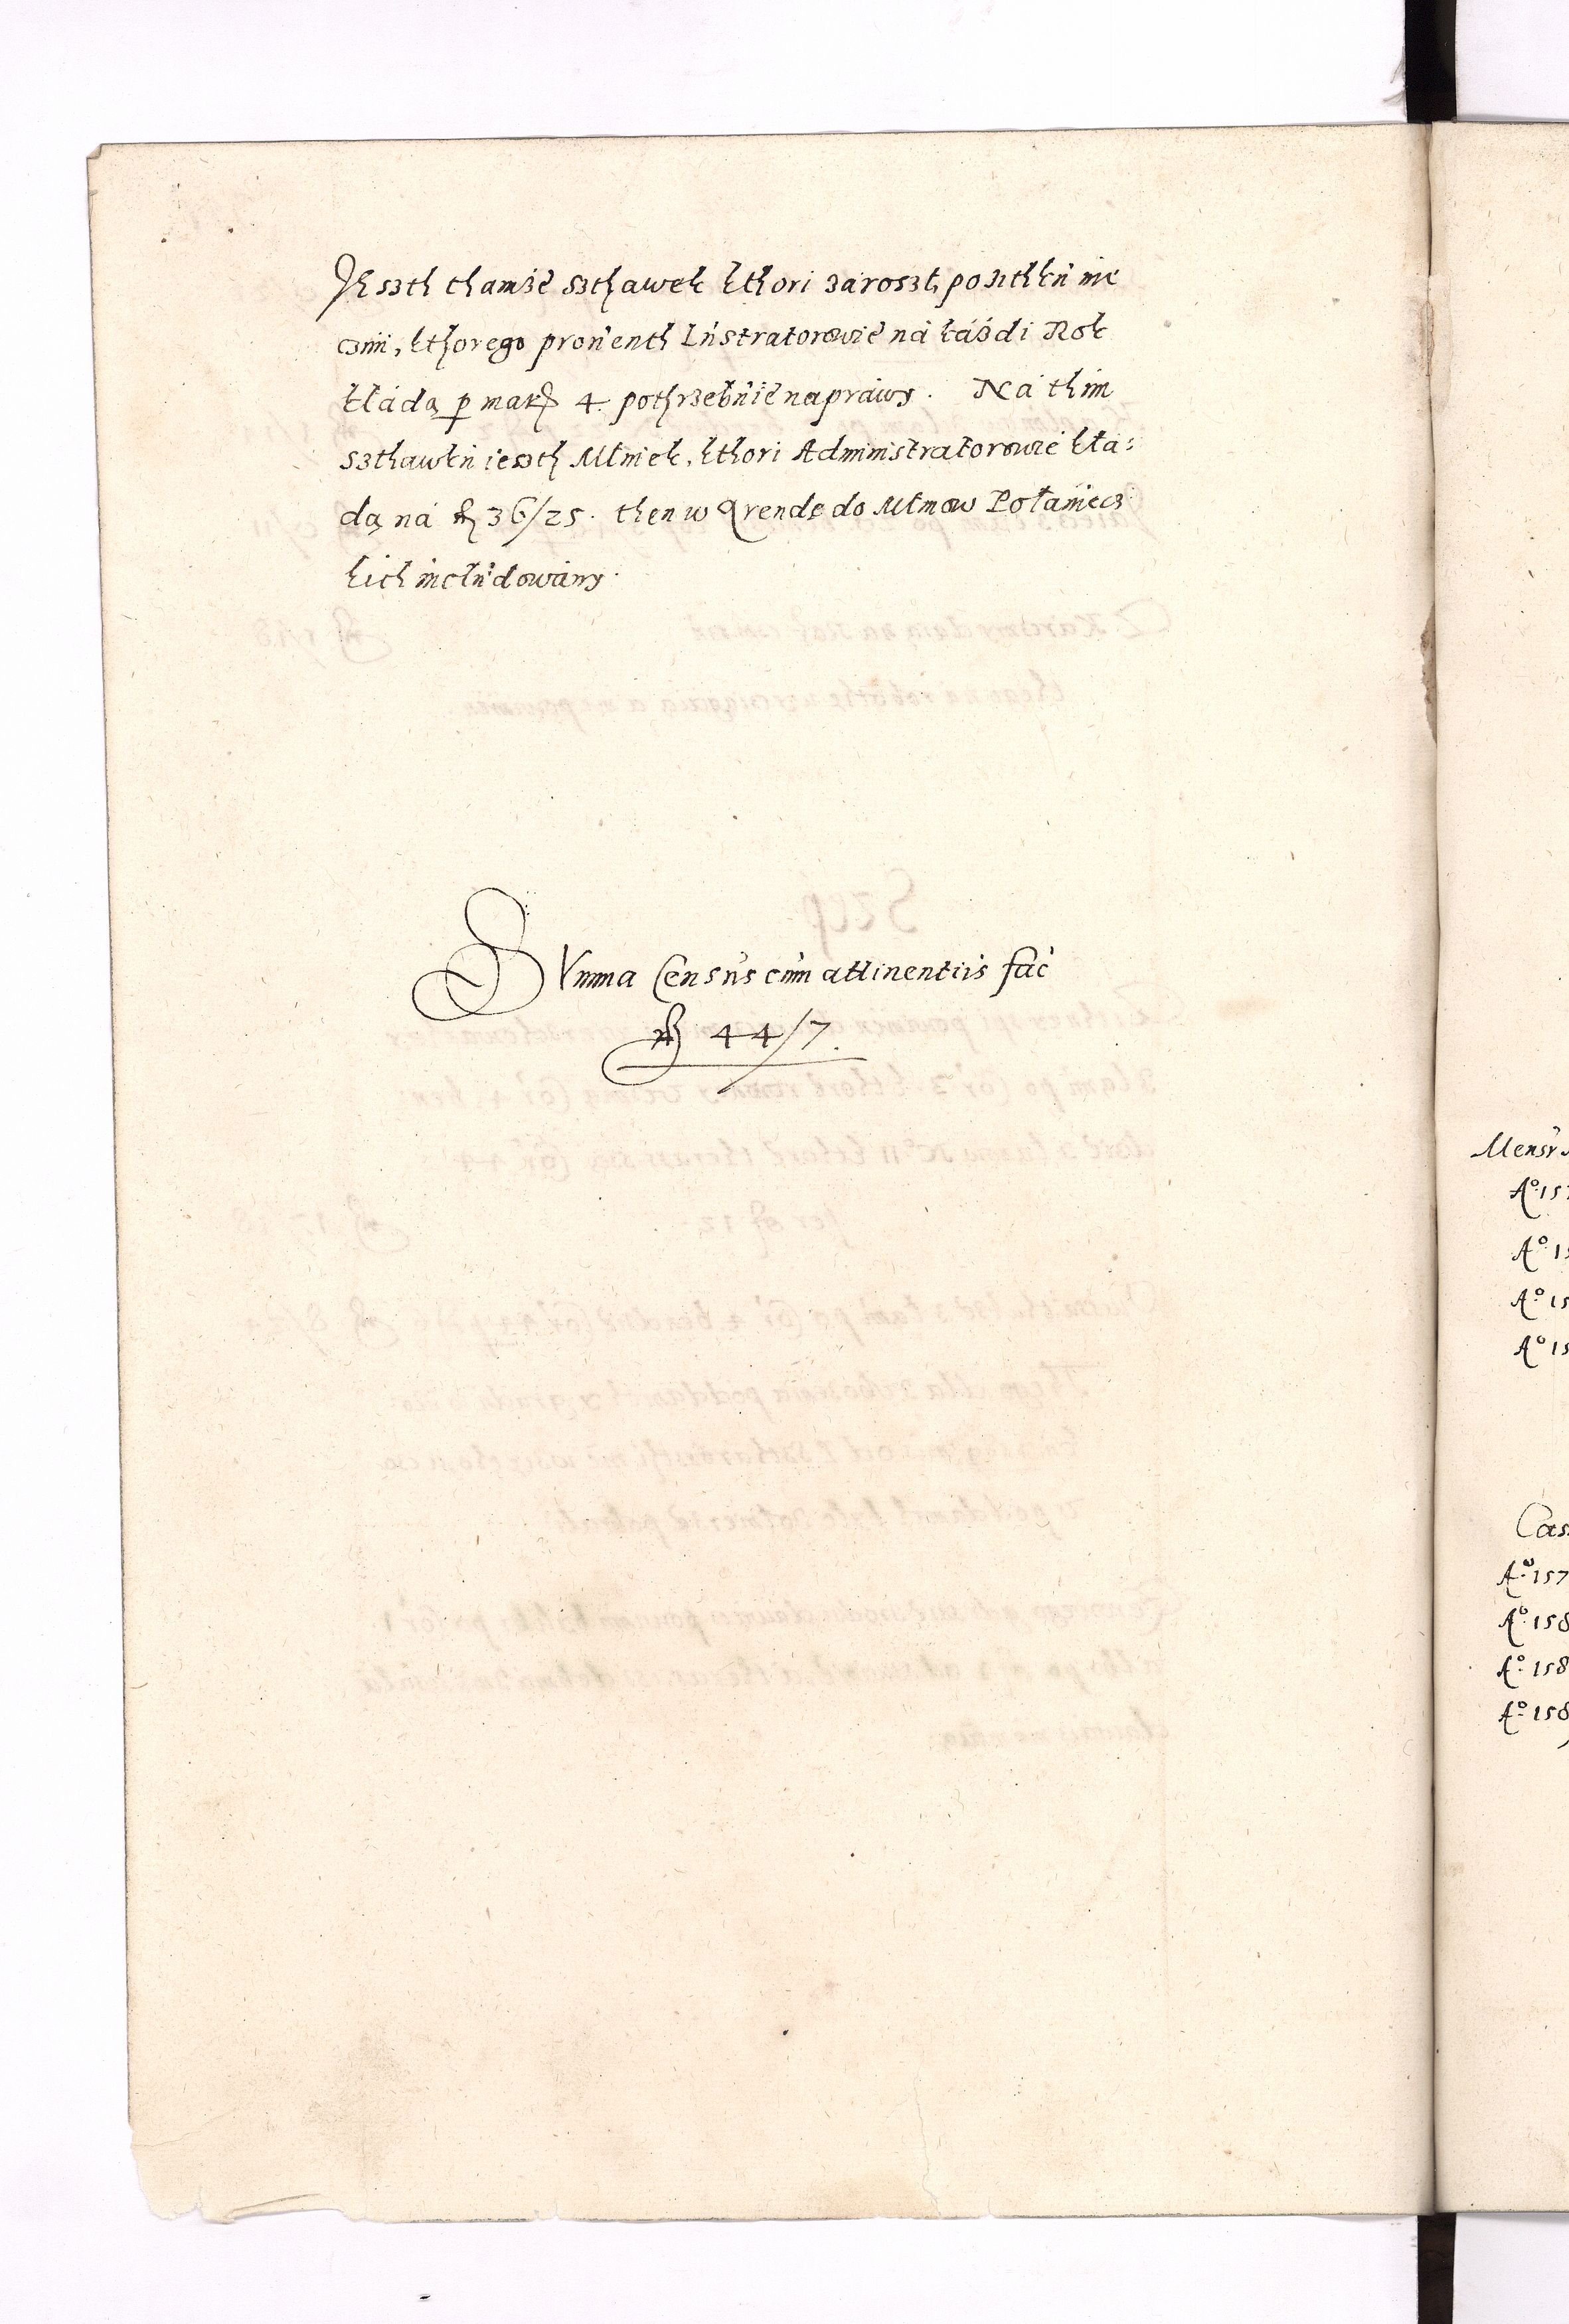 Jeszth thamże szthawek kthori zaroszł, pożithku nie
czini, kthorego prouenth Lustratorowie ná káżdi Rok
kłádą p mark 4 pothrzebuie napráwy. Ná thim
szthawku ieszth Młinek, kthori Administratorowie kła:
dą ná fl 36/25. then w Arendę do Młinow Połaniecz
kich includowány.
SVmma Census cum attinentiis fac
fl 44/7.
Mensur
Aº 157
Aº 15
Aº 15
Aº 15
Cas
Aº 157
Aº 158
Aº 158
Aº 158